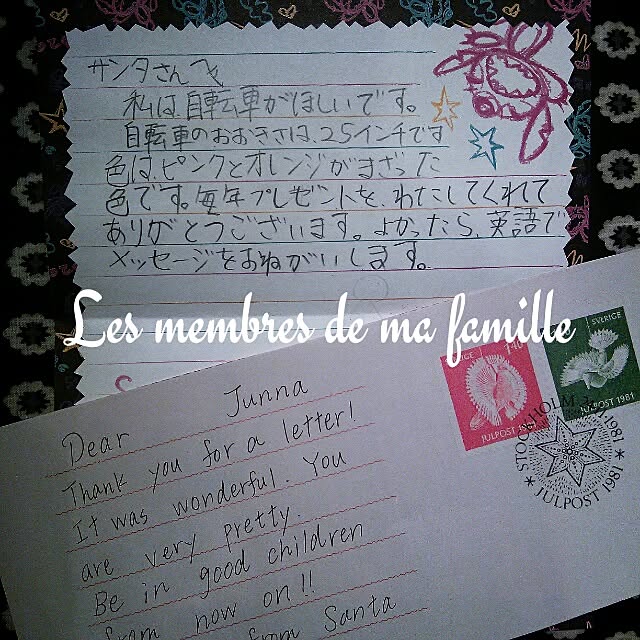 サンタさんへ
私は、自転車がほしいです。
自転車のおおきさは、25インチです
色は、ピンクとオレンジがまざった
色です。毎年プレゼントを、わたしてくれて
ありがとうございます。よかったら、英語で
メッセージをおねがいします。
Les membres de ma famille
Dear Junna
Thank you for a letter!
It was wonderful. You
are very pretty.
Be in good children
from now on!!
from Santa
SVERIGE
JULPOST 1981
SVERIGE
JULPOST 1981
STOCKHOLM
1981
* JULPOST 1981 *